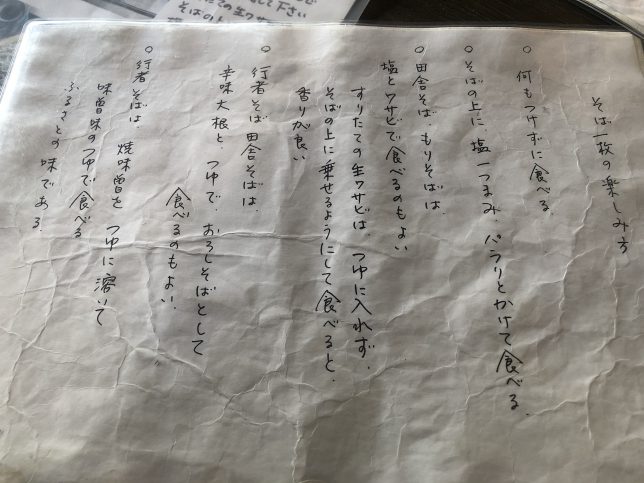 そば一枚の楽しみ方
○ 何もつけずに食べる.
○ そばの上に 塩一つまみ. パラリとかけて 食べる.
○ 田舎そば. もりそばは.
塩とワサビで食べるのもよい
すりたての生ワサビは. つゆに入れず.
そばの上に乗せるようにして食べると.
香りが良い
○ 行者そば 田舎そばは.
辛味大根と. つゆで. おろしそばとして
食べるのもよい.
○ 行者そばは. 焼味噌を つゆに溶いて
味噌味のつゆで食べる
ふるさとの味である.
して下さい
そばの上